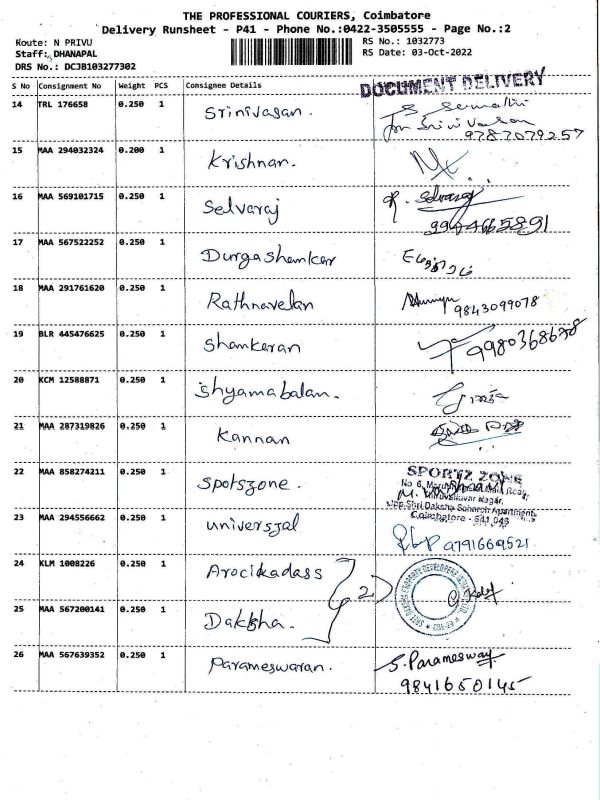 THE PROFESSIONAL COURIERS, Coimbatore
Delivery Runsheet - P41 - Phone No.:0422-3505555 - Page No.:2
Route: N PRIVU
Staff: DHANAPAL
DRS No.: DCJB103277302
RS No.: 1032773
RS Date: 03-Oct-2022
S No Consignment No Weight PCS Consignee Details
DOCUMENT DELIVERY
14 TRL 176658 0.250 1 Srinivasan.
for Srinivasan
9787079257
15 MAA 294032324 0.200 1 Krishnan.
16 MAA 569101715 0.250 1 Selvaraj
R. Selvaraj
9994665891
17 MAA 567522252 0.250 1 Durgashankar
18 MAA 291761620 0.250 1 Rathnavelan
9843099078
19 BLR 445476625 0.250 1 Shankaran
9980368678
20 KCM 12588871 0.250 1 Shyamabalan.
21 MAA 287319826 0.250 1 Kannan
22 MAA 858274211 0.250 1 Spotszone.
SPORTZ ZONE
Coimbatore - 641 046
23 MAA 294556662 0.250 1 Universjal
9791669521
24 KLM 1008226 0.250 1 Arocikadass
2
25 MAA 567200141 0.250 1 Daksha.
26 MAA 567639352 0.250 1 Parameswaran.
S. Parameswary
9841650145